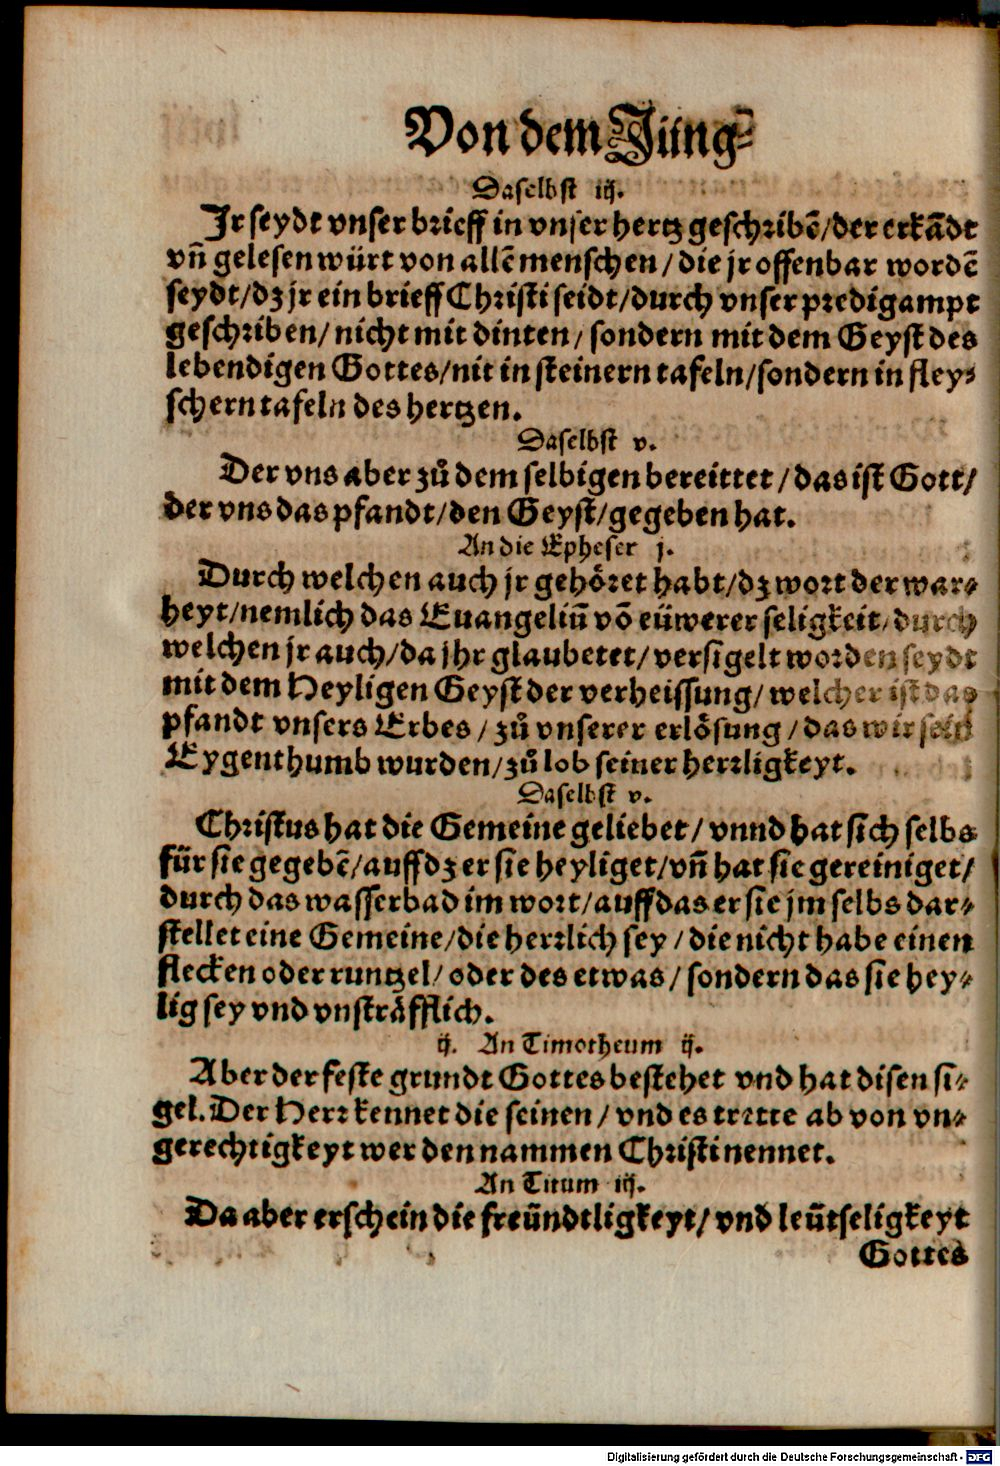 Von dem Jüng-
Daselbst iij.
Jr seydt vnser brieff in vnser hertz geschribē/der erkādt
vñ gelesen würt von allē menschen/die jr offenbar wordē
seydt/dz jr ein brieff Christi seidt/durch vnser predigampt
geschriben/nicht mit dinten/sondern mit dem Geyst des
lebendigen Gottes/nit in steinern tafeln/sondern in fley-
schern tafeln des hertzen.
Daselbst v.
Der vns aber zů dem selbigen bereittet/das ist Gott/
der vns das pfandt/den Geyst/gegeben hat.
An die Epheser j.
Durch welchen auch jr gehöret habt/dz wort der war-
heyt/nemlich das Euangeliū vō eüwerer seligkeit/durch
welchen jr auch/da jhr glaubetet/versigelt worden seydt
mit dem Heyligen Geyst der verheissung/welcher ist das
pfandt vnsers Erbes/zů vnserer erlösung/das wir sein
Eygenthumb wurden/zů lob seiner herrligkeyt.
Daselbst v.
Christus hat die Gemeine geliebet/vnnd hat sich selbs
für sie gegebē/auff dz er sie heyliget/vñ hat sie gereiniget/
durch das wasserbad im wort/auff das er sie jm selbs dar-
stellet eine Gemeine/die herrlich sey/die nicht habe einen
flecken oder runtzel/oder des etwas/sondern das sie hey-
lig sey vnd vnsträfflich.
ij. An Timotheum ij.
Aber der feste grundt Gottes bestehet vnd hat disen si-
gel. Der Herr kennet die seinen/vnd es trette ab von vn-
gerechtigkeyt wer den nammen Christi nennet.
An Titum iij.
Da aber erschein die freündtligkeyt/vnd leütseligkeyt
Gottes
Digitalisierung gefördert durch die Deutsche Forschungsgemeinschaft - DFG